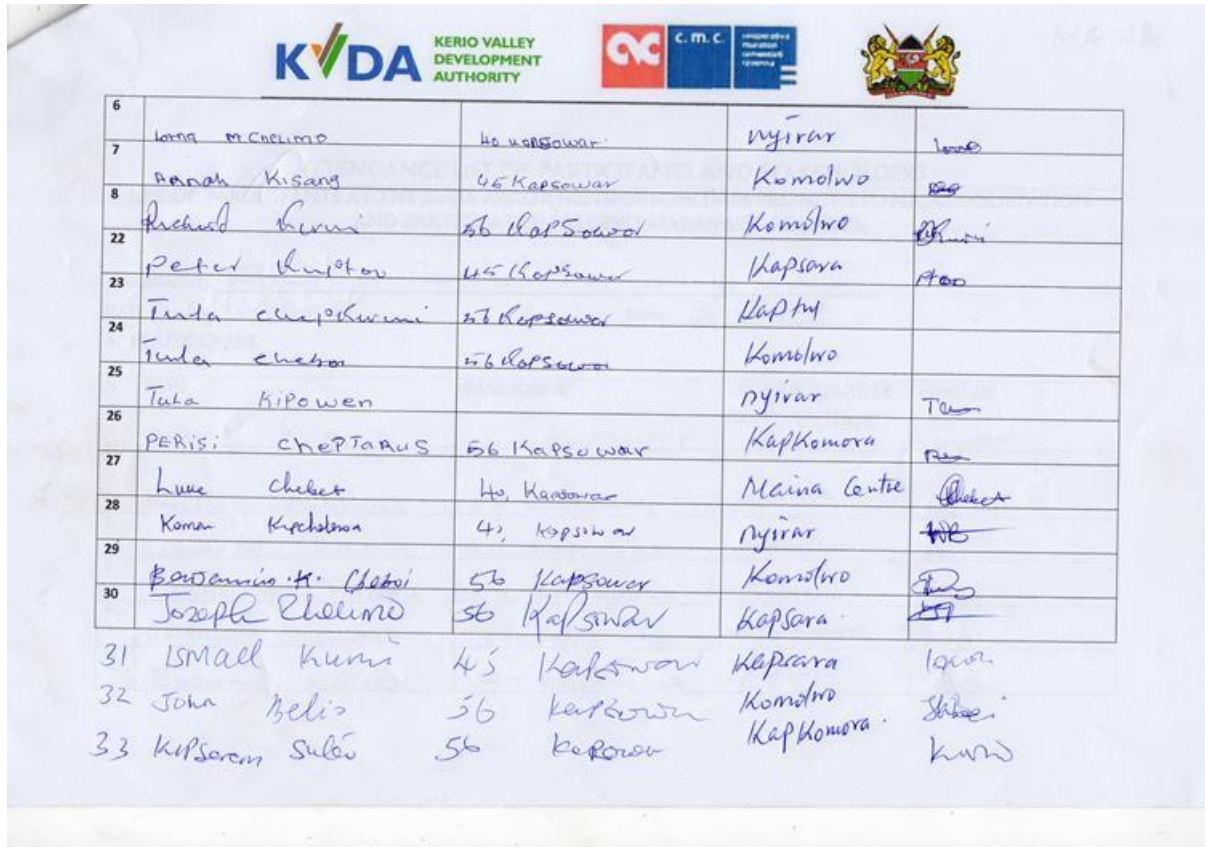 KVDA KERIO VALLEY DEVELOPMENT AUTHORITY c.m.c.
6 Lorna M Chelimo 40 Kapsowar nyirar
7 Annah Kisang 45 Kapsowar Komolwo
8 Richard Kurui 56 Kapsowar Komolwo
22 Peter 45 Kapsowar Kapsara
23 Tula Chepkurmi 56 Kapsowar Kaptul
24 Tula Cheboi 56 Kapsowar Komolwo
25 Tula Kipowen nyirar
26 PERISi ChePTARUS 56 Kapsowar KapKomora
27 Luke Chebet 40, Kapsowar Maina Centre Chebet
28 Komen 45, Kapsowar nyirar
29 Benjamin .K. Cheboi 56 Kapsowar Komolwo
30 Joseph Chelimo 56 Kapsowar Kapsara
31 Ismael Kurui 45 Kapsowar Kapsara
32 John 56 Kapsowar Komolwo
33 56 Kapsowar KapKomora